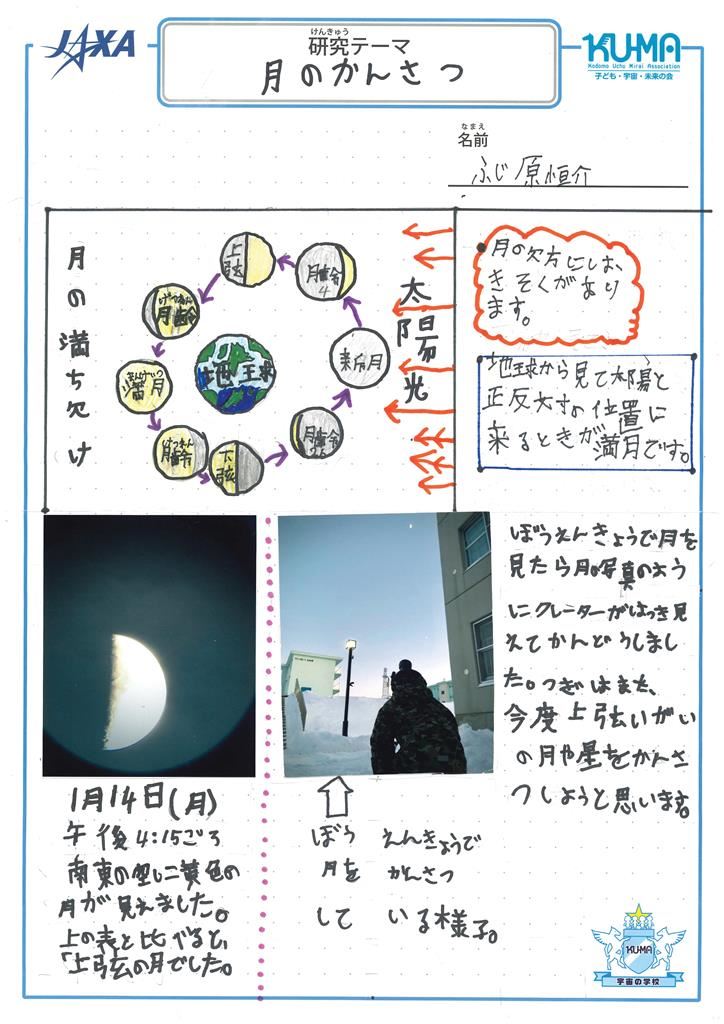 JAXA
けんきゅう
研究テーマ
月のかんさつ
KU-MA
Kodomo Uchu Mirai Association
子ども・宇宙・未来の会
なまえ
名前
ふじ原恒介
月の満ち欠け
上弦
月齢
4
げつれい
月齢
地球
新月
まんげつ
満月
げつれい
月齢
下弦
月齢
太陽光
●月の欠方にしは、
きそくがあり
ます。
地球から見て太陽と
正反対の位置に
来るときが満月です。
ぼうえんきょうで月を
見たら月の写真のよう
にクレーターがはっき見
えてかんどうしまし
た。つぎはまた、
今度上弦いがい
の月や星をかんさ
つしようと思います。
1月14日(月)
午後4:15ごろ
南東の空に黄色の
月が見えました。
上の表と比べると、
「上弦の月でした。
ぼうえんきょうで
月をかんさつ
している様子。
KU-MA
宇宙の学校